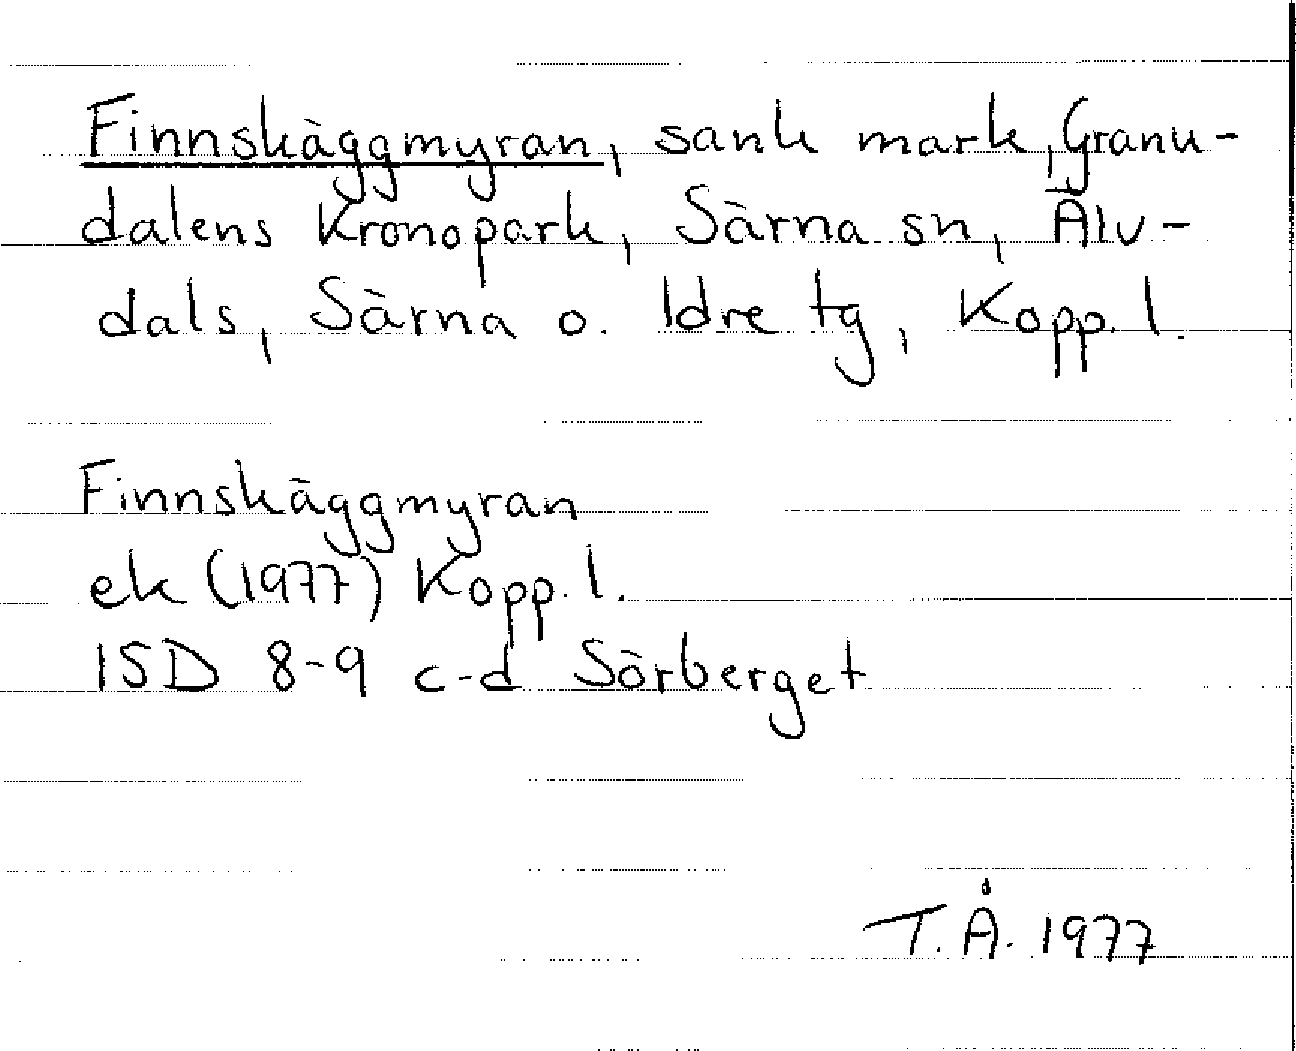 Finnskäggmyran, sank mark, Granu-
dalens Kronopark, Särna sn, Älv-
dals, Särna o. Idre tg, Kopp. l.
Finnskäggmyran
ek (1977) Kopp. l.
15D 8-9 c-d Sörberget
T.Å. 1977